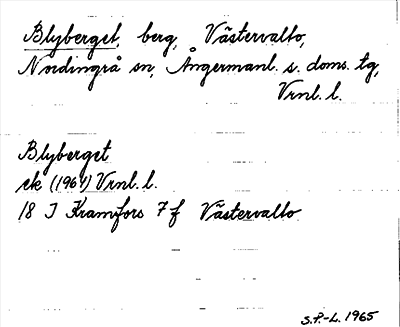 Blyberget, berg, Västervalto,
Nordingrå sn, Ångermanl. s. doms. tg,
Vrnl. l.
Blyberget
ek (1961) Vrnl. l.
18 J Kramfors 7 f Västervalto
S.P.-L. 1965